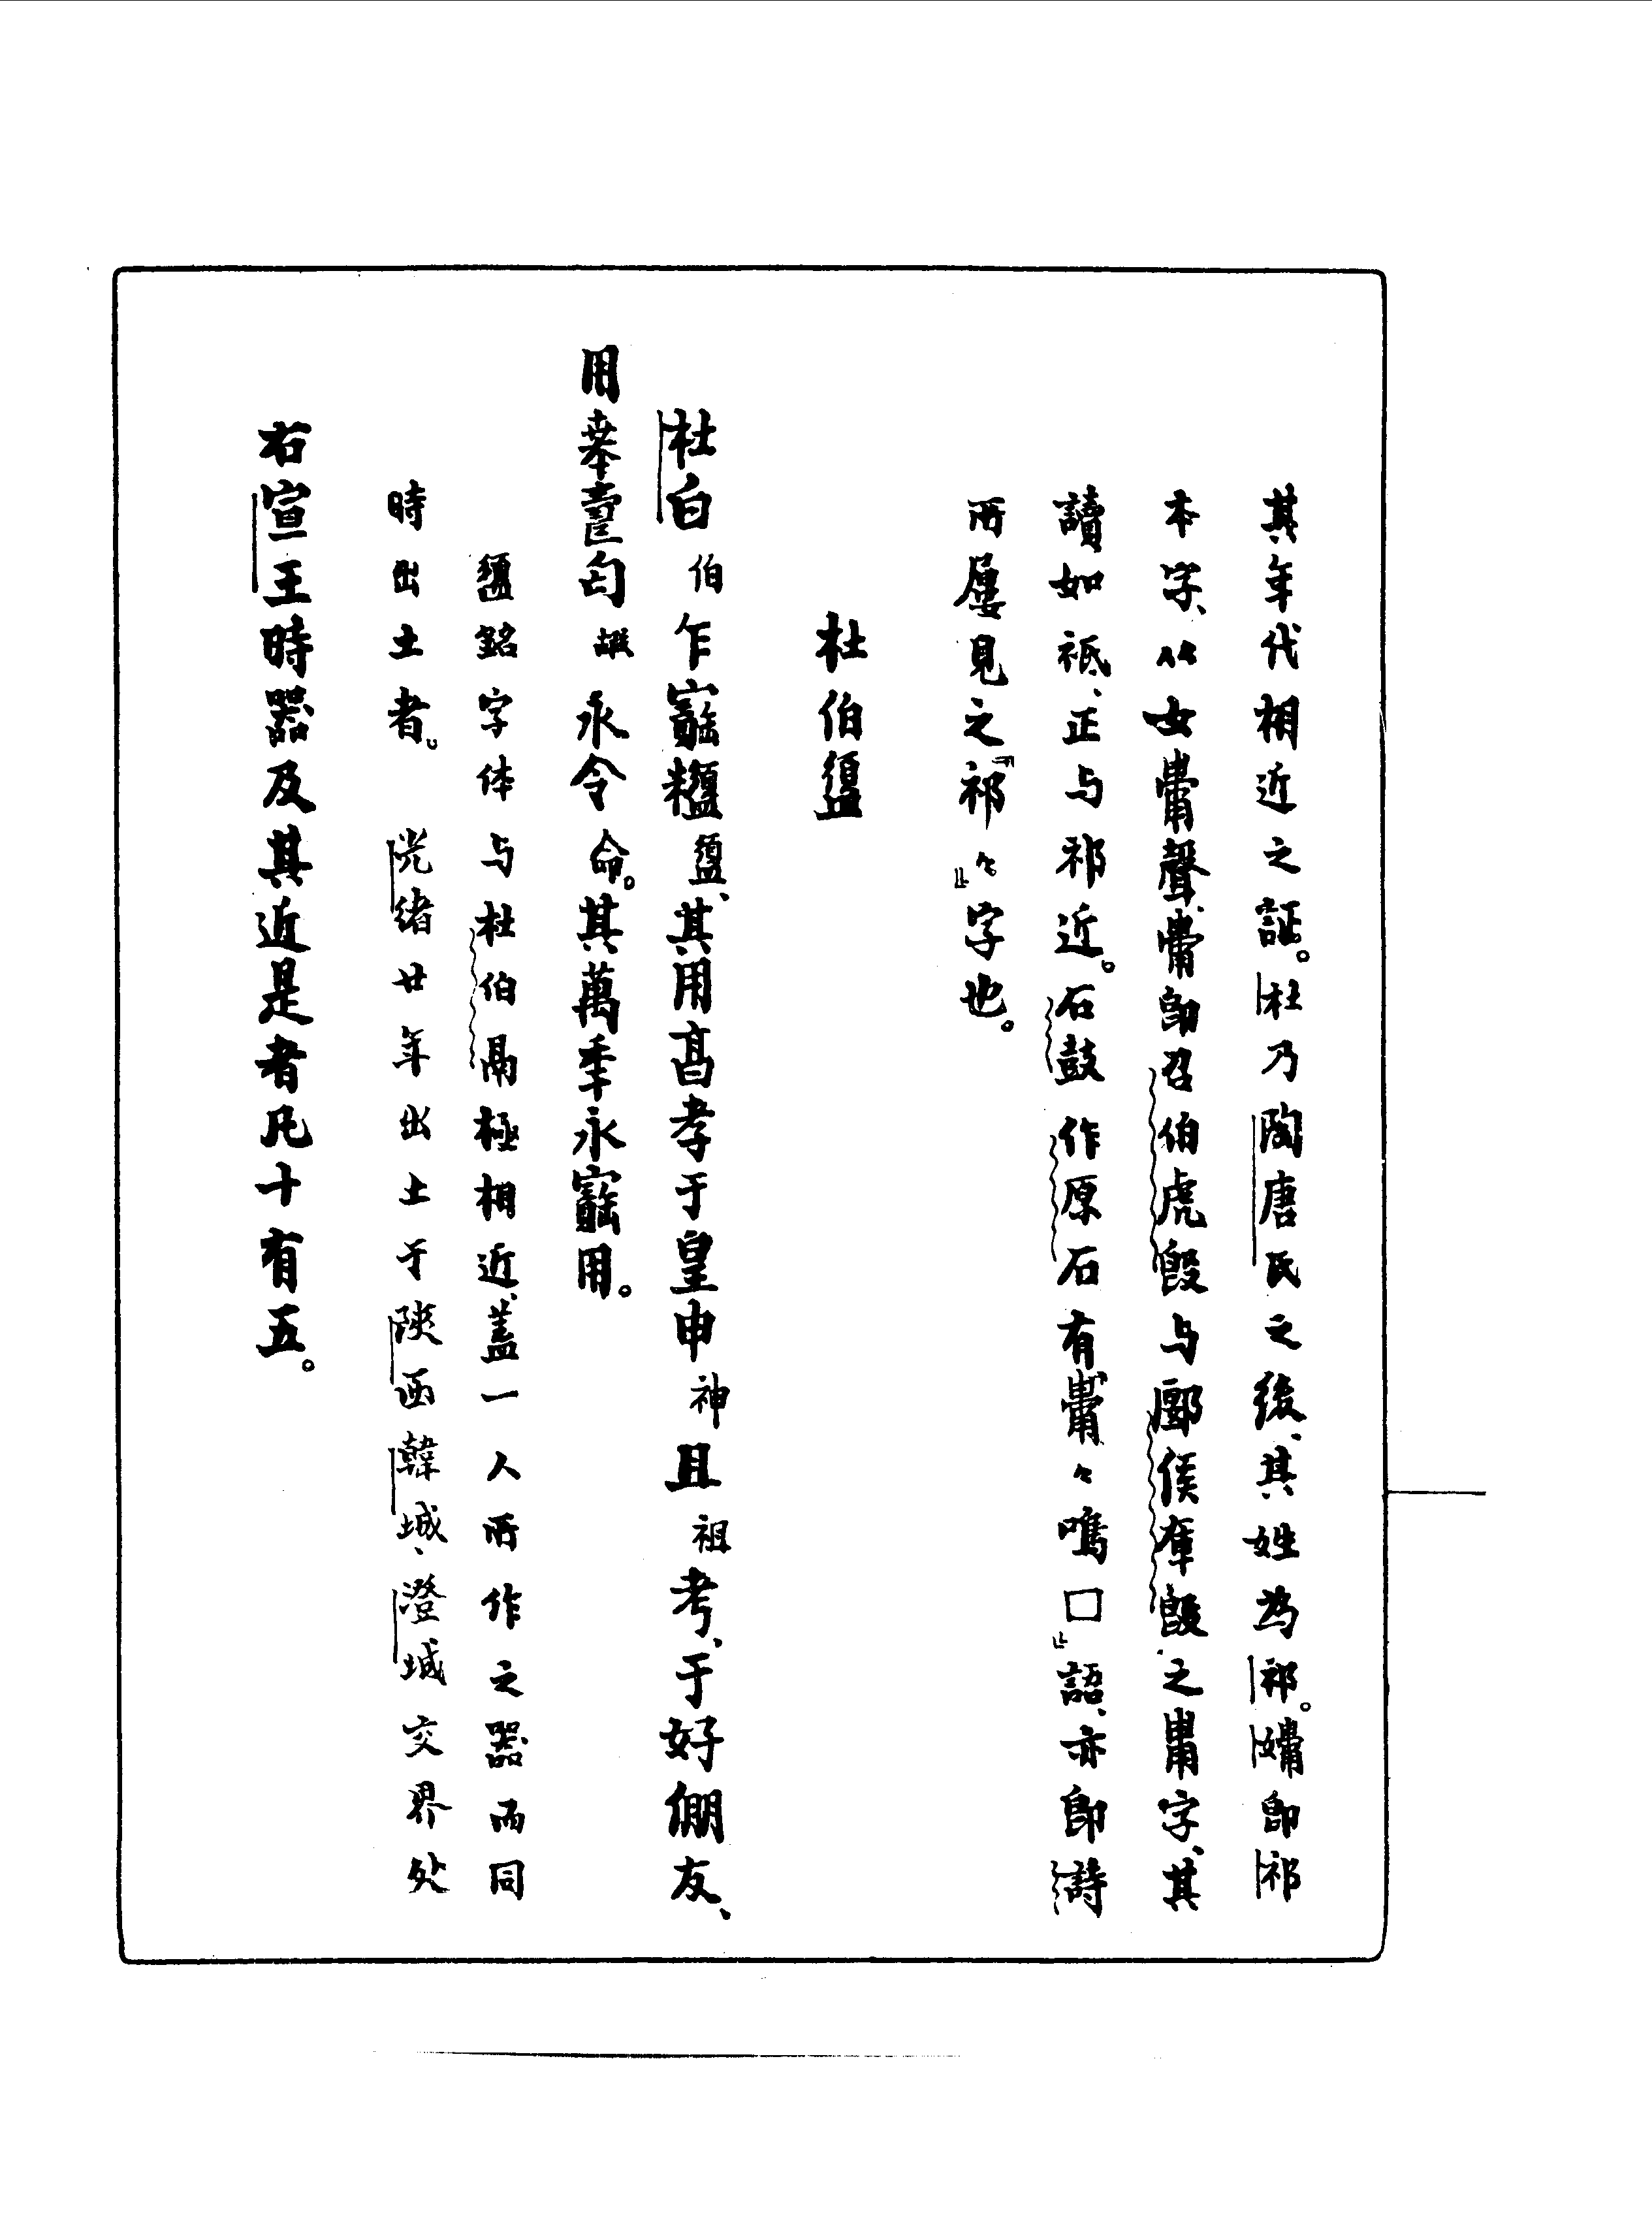 其年代相近之証。杜乃陶唐氏之後、其姓為祁。嬕即祁
本字、从女𤲞聲、𤲞即召伯虎𣪘与郾侯庫𣪘之𤲞字、其
讀如祗、正与祁近。石鼓作原石有『𤲞々鳴□』語、亦即詩
所屢見之『祁々』字也。
杜伯盨
杜白伯乍寶盨盨、其用亯孝于皇申神且祖考、于好倗友、
用𠦪壽匄永令命。其萬年永寶用。
盨銘字体与杜伯鬲極相近、蓋一人所作之器而同
時出土者。光緒廿年出土于陝西韓城、澄城交界处
右宣王時器及其近是者凡十有五。